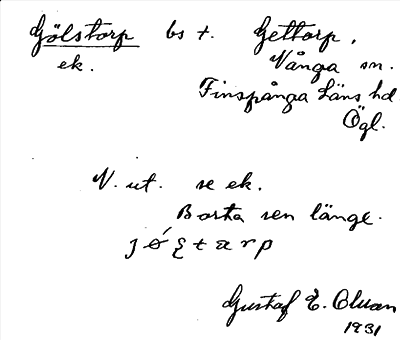 Gölstorp bs t. Gettorp,
ek. Vånga sn.
Finspånga Läns hd
Ögl.
N. ut. se ek.
Borta sen länge.
Gustaf E.
1931